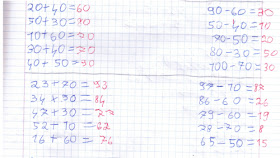 20+40=60
50+30=80
10+60=70
30+40=70
40+50=90
90-60=30
50-40=10
70-50=20
80-30=50
100-70=30
23+70=93
34+50=84
47+30=77
52+10=62
16+60=76
97-10=87
86-60=26
79-60=19
78-70=8
65-50=15